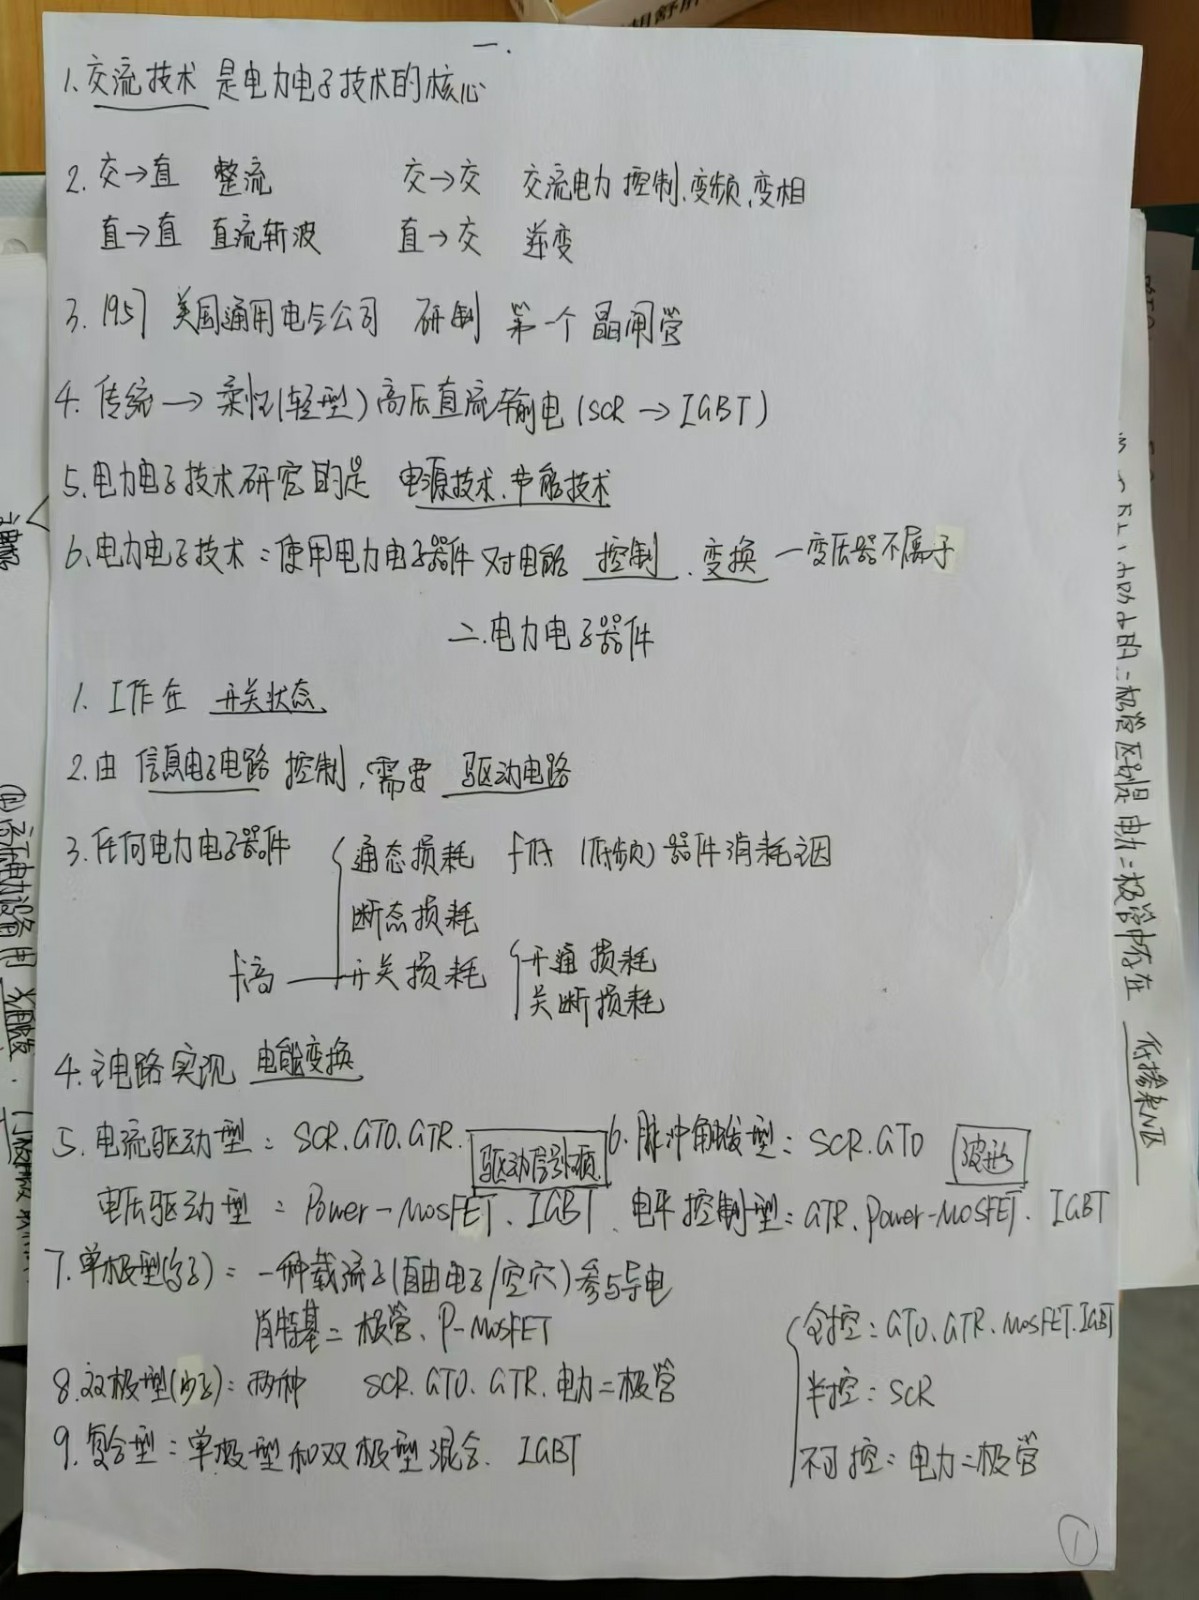 一.
1. 交流技术 是电力电子技术的核心
2. 交→直 整流 交→交 交流电力控制、变频、变相
直→直 直流斩波 直→交 逆变
3. 1957 美国通用电气公司 研制 第一个晶闸管
4. 传统 → 柔性(轻型)高压直流输电(SCR → IGBT)
5. 电力电子技术研究的是 电源技术、节能技术
6. 电力电子技术：使用电力电子器件对电能 控制、变换 — 变压器不属于
二.电力电子器件
1. 工作在 开关状态
2. 由 信息电子电路 控制，需要 驱动电路
3. 任何电力电子器件 通态损耗 f低 (低频)器件消耗主因
断态损耗
f高 — 开关损耗 开通损耗
关断损耗
4. 主电路实现 电能变换
5. 电流驱动型：SCR、GTO、GTR. 驱动信号性质
电压驱动型：Power-MOSFET、IGBT
6. 脉冲触发型：SCR、GTO 波形
电平控制型：GTR、Power-MOSFET、IGBT
7. 单极型(多子)：一种载流子(自由电子/空穴)参与导电
肖特基二极管、P-MOSFET
8. 双极型(少子)：两种 SCR、GTO、GTR、电力二极管
9. 复合型：单极型和双极型混合. IGBT
全控：GTO、GTR、MOSFET、IGBT
半控：SCR
不可控：电力二极管
①
二极管区别是电力二极管中存在 低掺杂N区
高压电力设备用